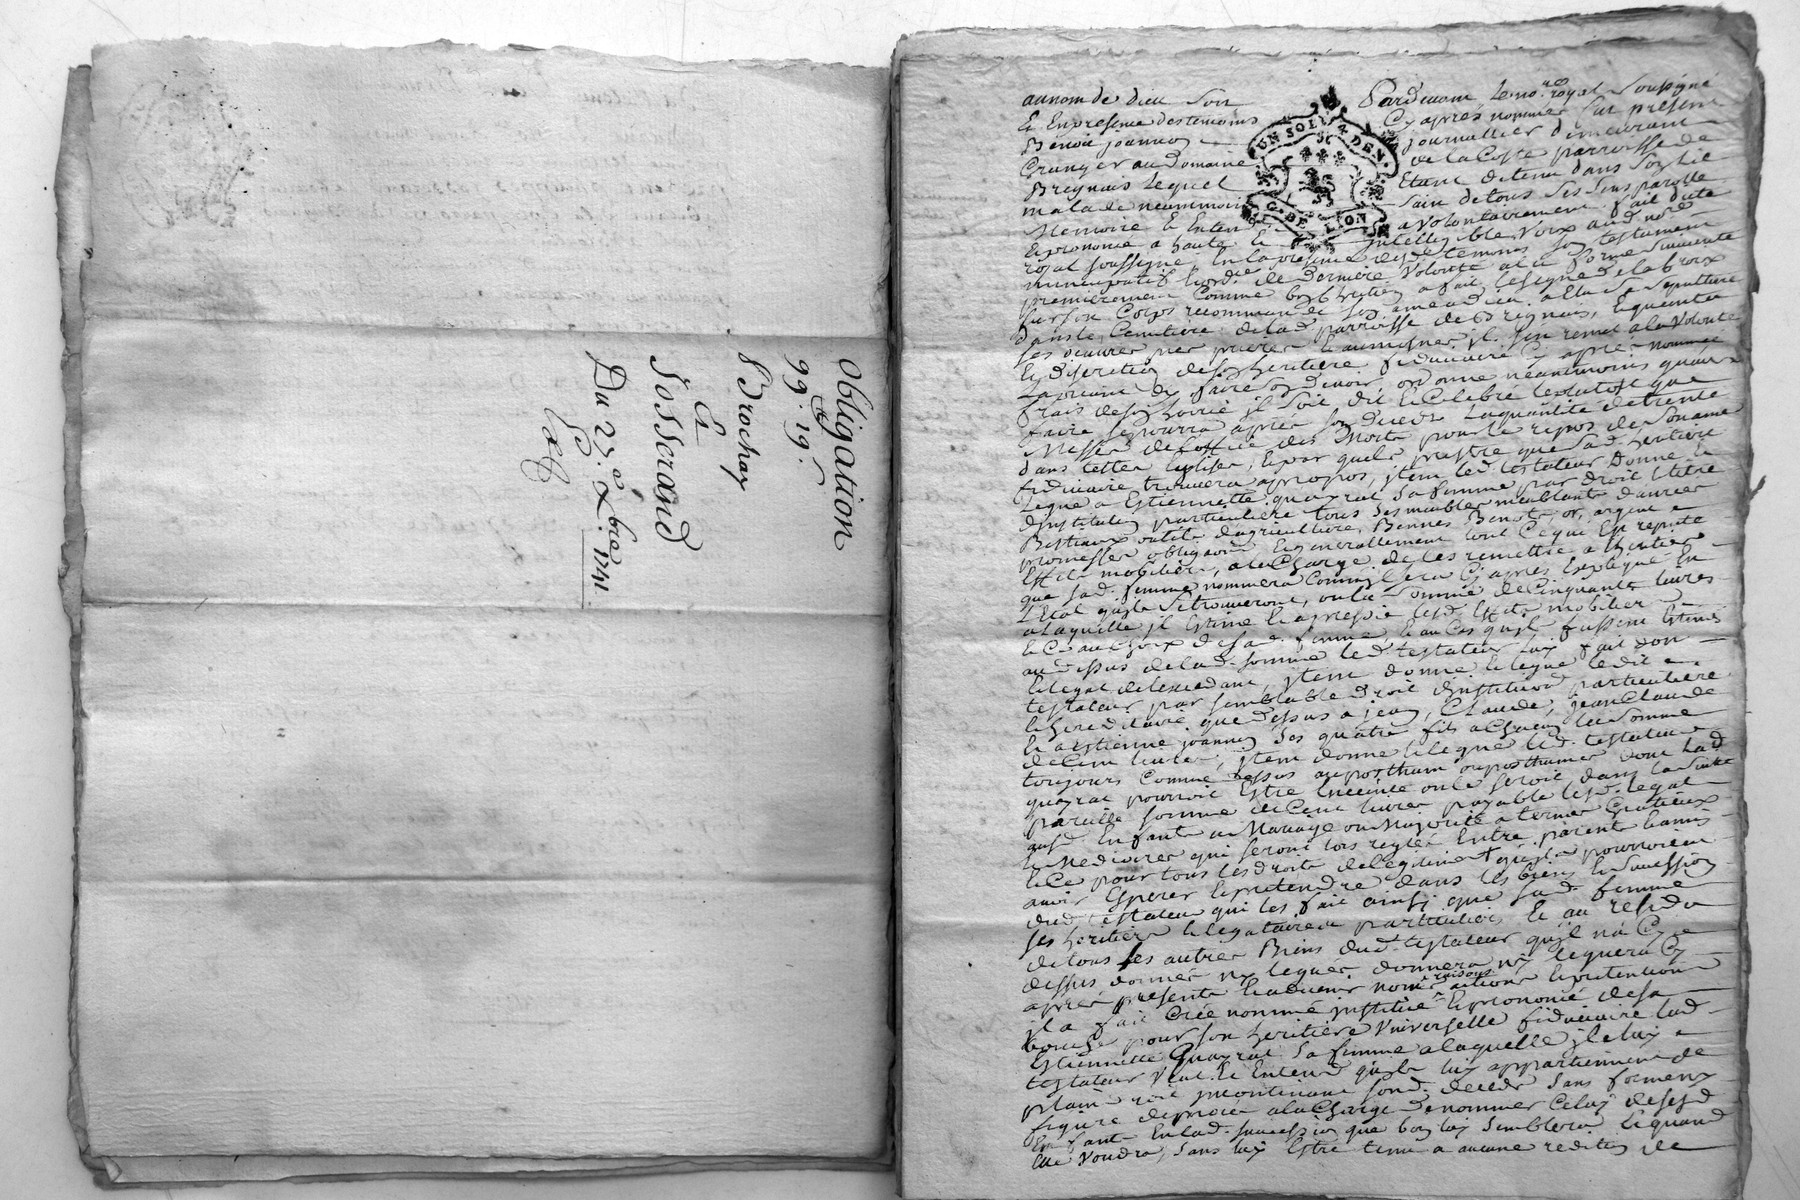 Obligation
99.# 19.s
Brochay
Et
Josserand
Du 27.e Xbre 1741.
UN SOL 4 DEN.
G. DE LION
au nom de dieu soit Pardevant le no.re royal soussigné
Et En presence des temoins Cy apres nommés fut present
Benoit joannon journallier demeurant
Granger au Domaine de la Coste parroisse de
Breignais Lequel Etant detenu dans son lit
malade neammoins sain de tous ses sens parolle
Memoire & Entend. a volontairement fait dicté
& prononcé a haute & intelligible Voix aud. no.re
royal soussigné En la presence desd. temoins son testament
nuncupatif & ord.ce de derniere Volonté a la forme suivante
premierement Comme bon Chretien a fait le signe de la Croix
sur son Corps recommandé son ame a dieu Esleu sa sepulture
dans le Cimetiere de lad. parroisse de Breignais, Et quant a
ses oeuvres pies prieres & aumosnes il s'en remet a la Volonté
& discretion de son heritiere fiduciaire Cy aprés nommée
La priant d'y faire son devoir ordonne neantmoins qu'aux
frais de son hoirie il soit dit & Celebré le plutost que
faire se pourra aprés son deceds La quantité de trente
Messes de l'office des Morts pour le repos de son ame
dans telles Eglises, & par quels prestres que sad. heritiere
fiduciaire trouvera apropos, jtem led. testateur Donne &
Legue a Estiennette quayrat sa femme par droit & titre
d'institution particuliere tous ses meubles meublants danrées
Bestiaux outils d'agriculture, Bennes Benots, or, argent
promesses obligations & generallement tout Ce qui Est reputé
Effets mobiliers, a la Charge de les remettre a l'heritier
que sad. femme nommera Comm'il sera Cy aprés Expliqué En
L'Etat qu'ils se trouveront, ou la somme de Cinquante livres
a laquelle jl Estime & apressie lesd. Effets mobiliers
& Ce au Choix de sad. femme, & au Cas qu'ils fussent Estimés
au dessus de lad. somme led. testateur luy fait don
& legat de l'excedant, jtem donne & legue ledit
testateur par semblable droit d'institution particuliere
& hereditaire que dessus a jean, Claude, jean Claude
& Estienne joannon ses quatre fils a Chacun la somme
de Cent livres, jtem donne & legue led. testateur
toujours Comme dessus au posthum ou posthumes dont lad.
quayrat pourroit Estre Enceinte ou le seroit dans la suite
pareille somme de Cent livres payable lesd. legats
ausd. Enfants En Mariage ou Majorité a termes Gratieux
& Mediocres qui seront lors reglés Entre parents & amis
& Ce pour tous les droits de legitime qu'ils pourroient
avoir Esperer & pretendre dans les biens & succession
dud. testateur qui les fait ainsi que sad. femme
ses heritiers & legataires particuliers & au residu
de tous les autres Biens dud. testateur qu'il n'a Cy
dessus donnés ny legués donnera ny leguera Cy
aprés presents & advenir noms raisons actions & pretentions
jl a fait Créé nommé jnstitué & prononcé de sa
bouche pour son heritiere Vniverselle fiduciaire lad.
Estiennette Quayrat sa femme a laquelle jl
testateur Veut & Entend qu'ils luy appartiennent de
plain droit jncontinant son d. deceds sans forme ny
figure de procés a la Charge de nommer Celuy de sesd.
Enfants En lad. succession que bon luy semblera & quand
Elle Voudra, sans luy Estre tenu a aucune reddition de